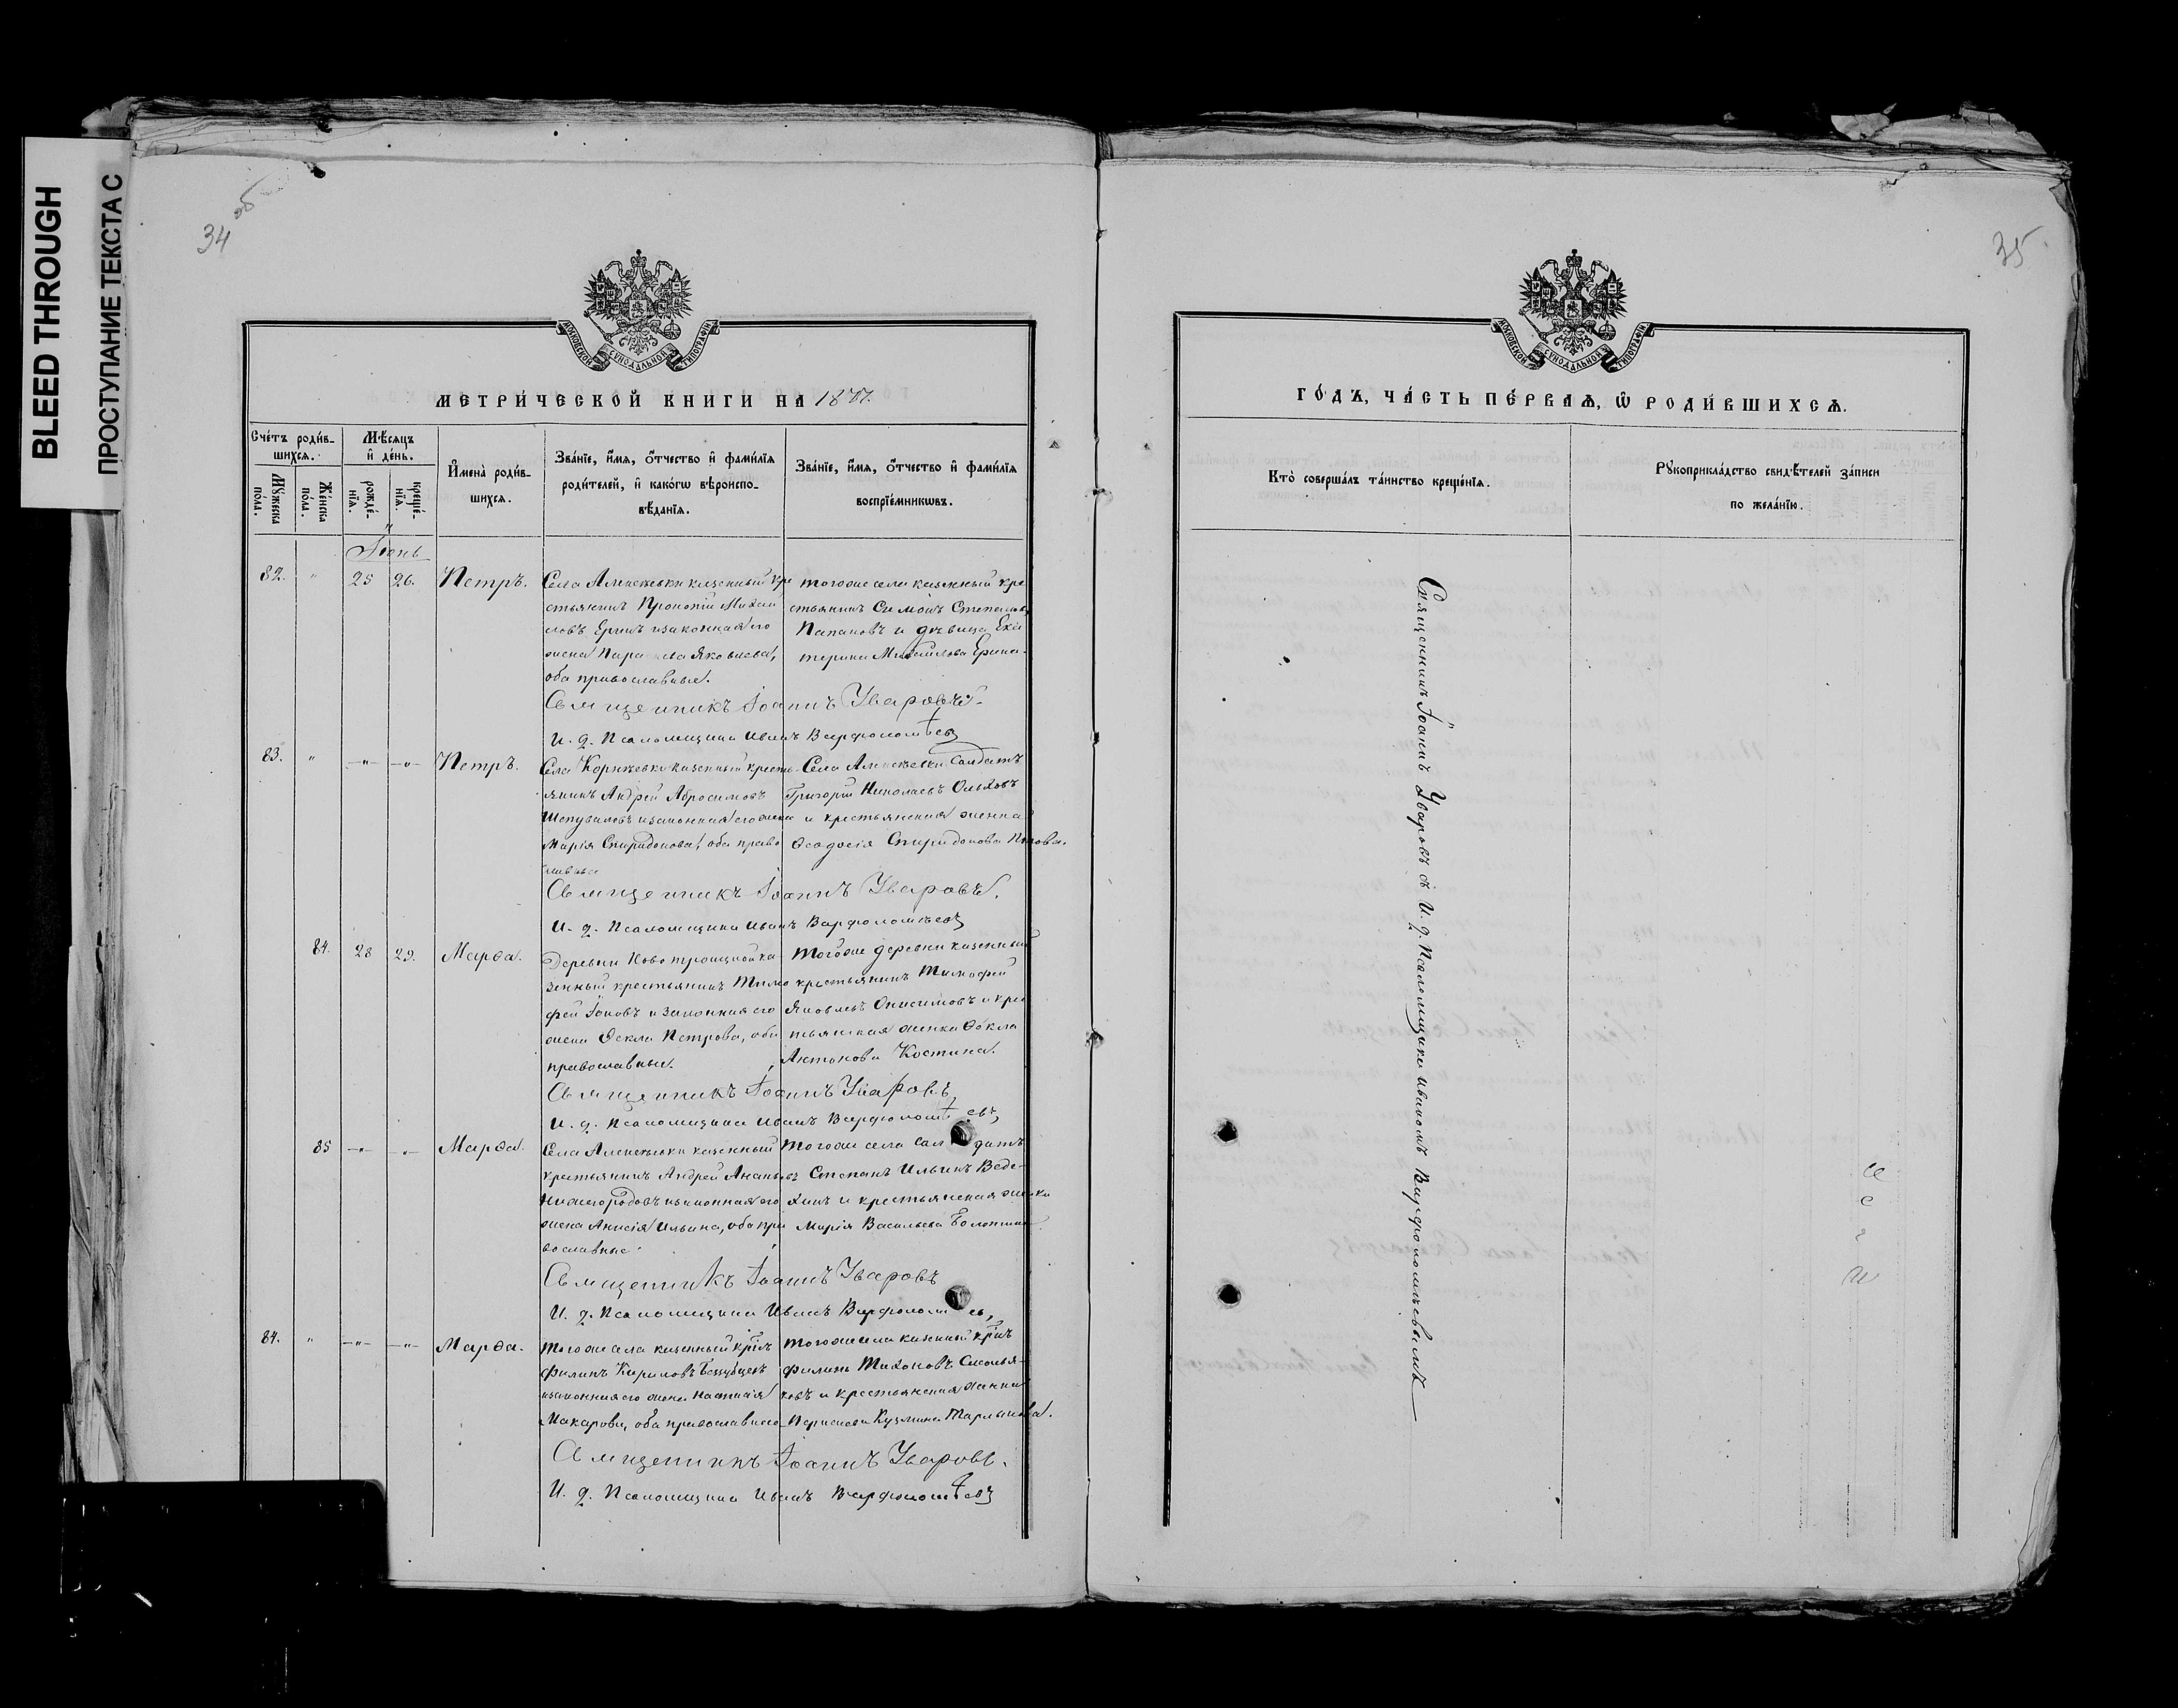 BLEED THROUGH
ПРОСТУПАНИЕ ТЕКСТА С
34 об
35
МОСКОВСКОЙ СѴНОДАЛЬНОЙ ТИПОГРАФІИ
МЕТРИ́ЧЕСКОЙ КНИГИ НА 1877.
Сче́тъ роди́в-
шихсѧ.
Мѣ́сѧцъ
и҆ де́нь.
Мꙋ́жеска
по́ла.
Же́нска
по́ла.
рожде́-
нїѧ.
креще́-
нїѧ.
И҆мена̀ роди́в-
шихсѧ.
Зва́нїе, и҆́мѧ, ѻ҆́тчество и҆ фами́лїѧ
роди́телей, и҆ како́гѡ вѣроиспо-
вѣ́данїѧ.
Зва́нїе, и҆́мѧ, ѻ҆́тчество и҆ фами́лїѧ
воспрїе́мникѡвъ.
Іюнь
82. " 25 26. Петръ.
Села Алексѣевки казенный кре
стьянинъ Прокопій Михаи
ловъ Еринъ и законная его
жена Яковлева,
оба православные.
тогоже села казенный кре
стьянинъ Симонъ Степановъ
Папановъ и дѣвица Ека
терина Михайлова Ерина.
Священникъ Іоаннъ Уваровъ.
И. д. Псаломщика Иванъ Варфоломѣевъ
83. " -"- -"- Петръ.
Села Корнѣевки казенный кресть
янинъ Андрей Абросимовъ
и законная его жена
Марія Спиридонова, оба право
славные
Села Алексѣевки Солдатъ
Григорій Николаевъ Ольховъ
и крестьянская женка
Ѳеодосія Спиридонова
Священникъ Іоаннъ Уваровъ.
И. д. Псаломщика Иванъ Варфоломѣевъ
84. 28 29. Марѳа.
Деревни Новотроицкой ка
зенный крестьянинъ Тимо
фей Іоновъ и законная его
жена Ѳекла Петрова, оба
православные.
тогоже деревни казенный
крестьянинъ Тимофей
Яковлевъ Онисимовъ и крес
тьянская женка Ѳекла
Антонова Костина.
Священникъ Іоаннъ Уваровъ
И. д. Псаломщика Иванъ Варфоломѣевъ
85 -"- -"- Марѳа.
Села Алексѣевки казенный
крестьянинъ Андрей Ананьевъ
Нижегородовъ и законная его
жена Анисія Ильина, оба пра
вославные.
Тогоже села солдатъ
Степанъ Ильинъ Веде-
хинъ и крестьянская женка
Марія Васильева Болотина.
Священникъ Іоаннъ Уваровъ
И. д. Псаломщика Иванъ
84. " -"- -"- Марѳа.
Тогоже села казенный кр҃інъ
Филипъ Кириловъ
и законная его жена Настасія
Макарова, оба православные
тогоже села казенный кр҃інъ
Филипъ Тихоновъ Смолья-
ковъ и крестьянская женка
Кузмина
Священникъ Іоаннъ Уваровъ.
И. д. Псаломщика Иванъ Варфоломѣевъ
МОСКОВСКОЙ СѴНОДАЛЬНОЙ ТИПОГРАФІИ
ГО́ДЪ, ЧА́СТЬ ПЕ́РВАѦ, Ѡ҆ РОДИ́ВШИХСѦ.
Кто̀ соверша́лъ та́инство креще́нїѧ.
Рꙋкоприкла́дство свидѣ́телей за́писи
по жела́нїю.
Священникъ Іоаннъ Уваровъ съ И. д. Псаломщика Иваномъ Варфоломѣевымъ